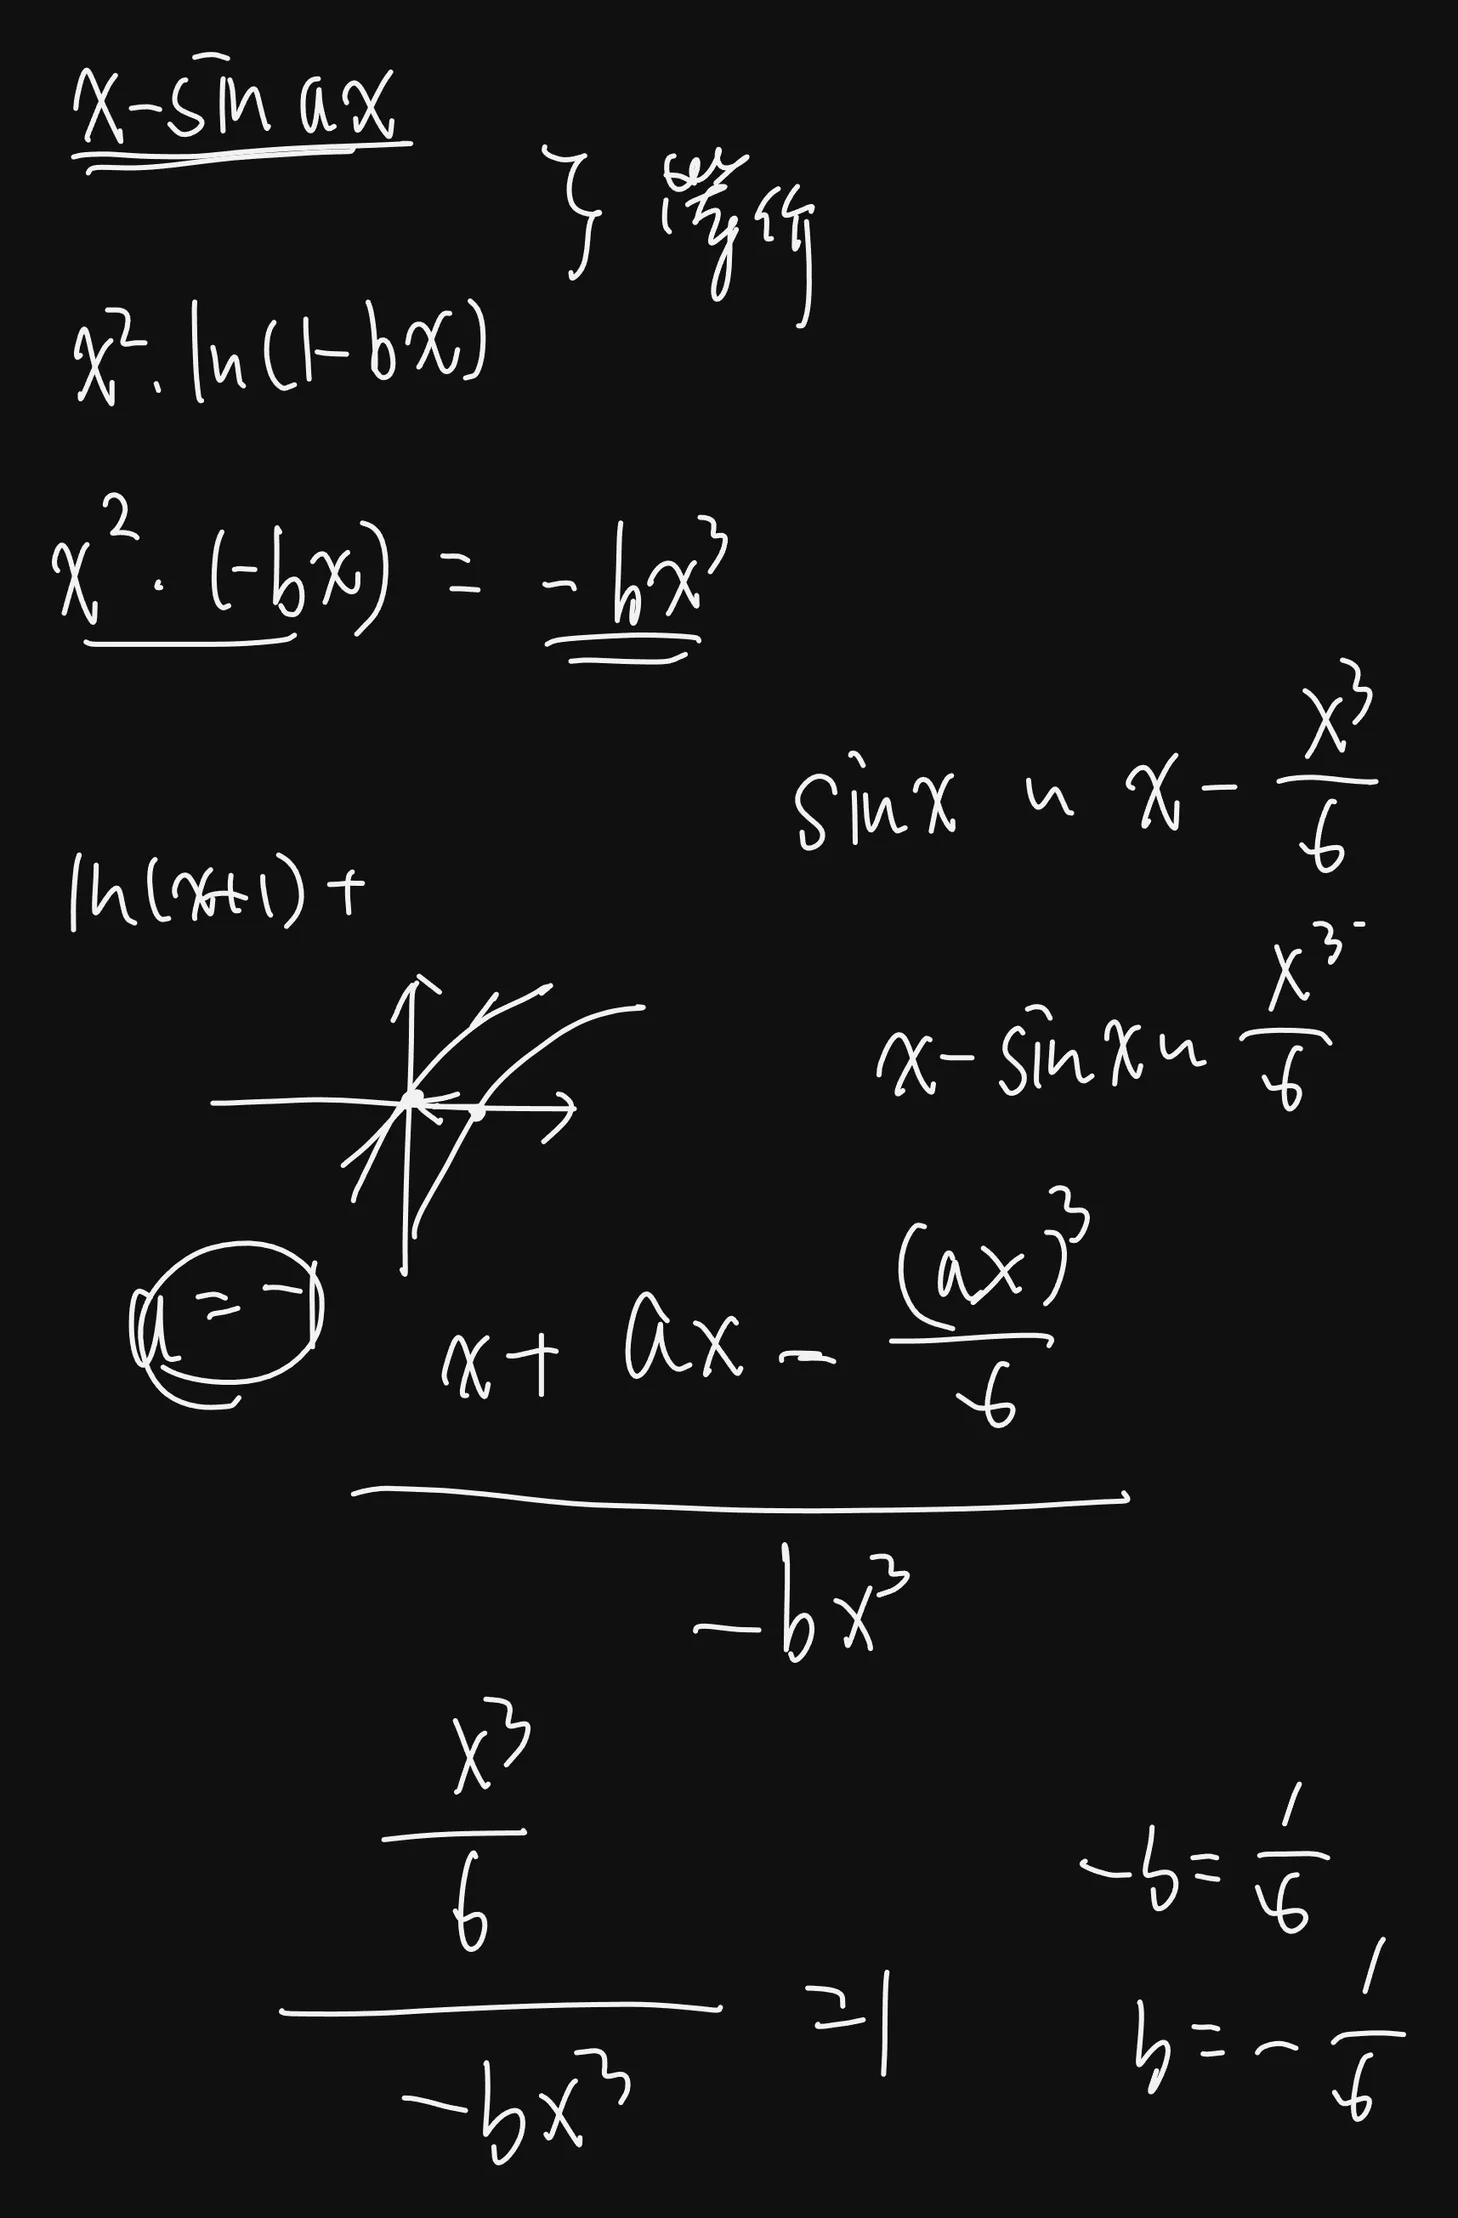 x-sin ax
x²·ln(1-bx)
x²·(-bx) = -bx³
sinx ~ x - x³/6
ln(x+1)+
x-sinx ~ x³/6
a=-1
x + ax - (ax)³/6
-bx³
x³/6
-bx³
=1
-b = 1/6
b = -1/6